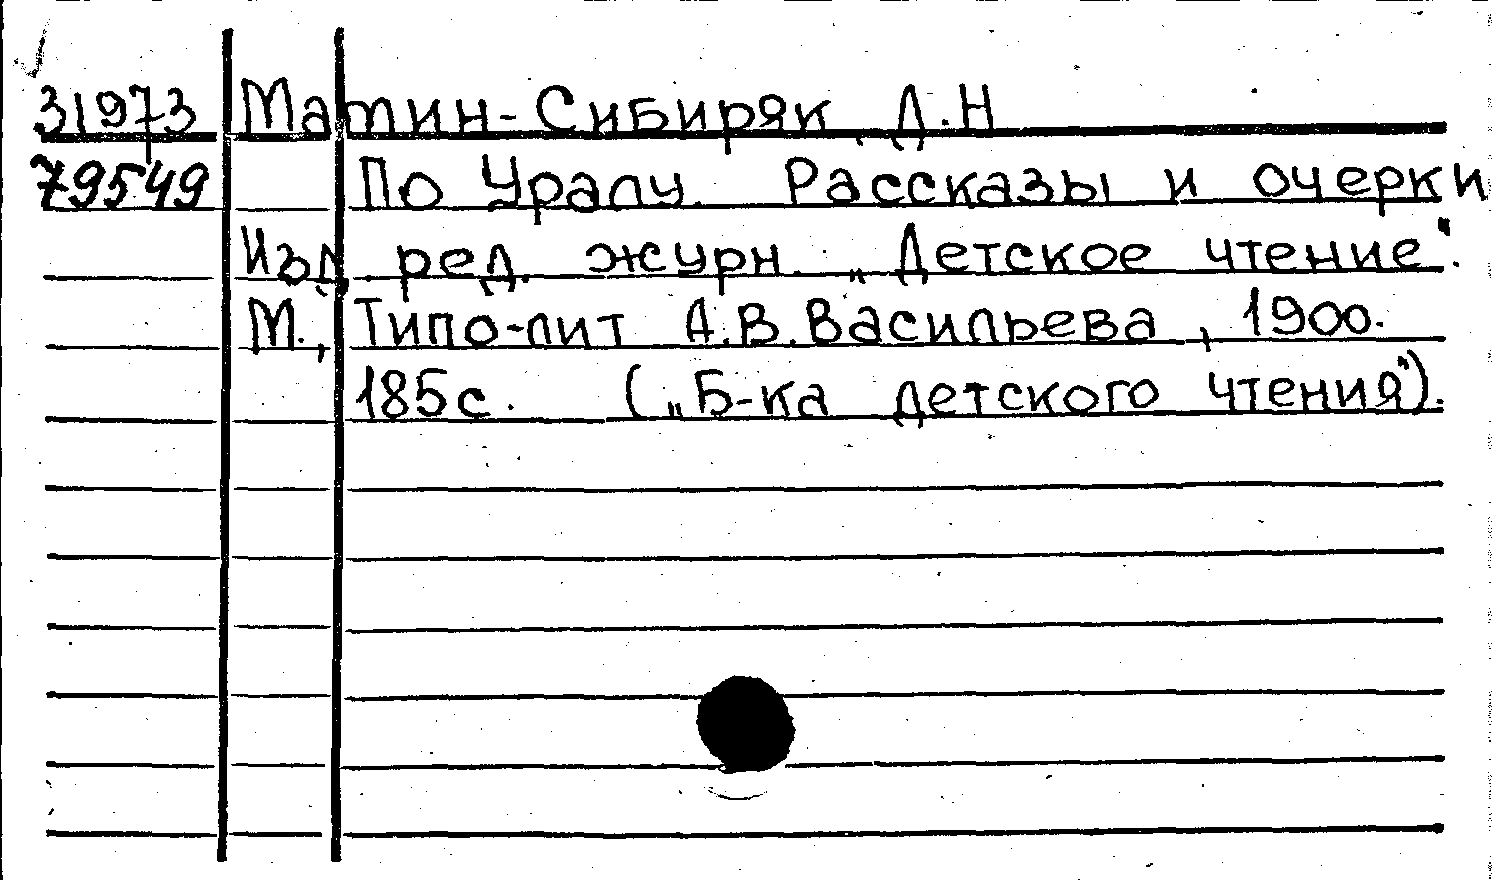 31973 Матин-Сибиряк, Д.Н
79549 По Уралу. Рассказы и очерки
Изд. ред. журн. „Детское чтение“.
М., Типо-лит А.В.Васильева, 1900.
185с. („Б-ка детского чтения“).